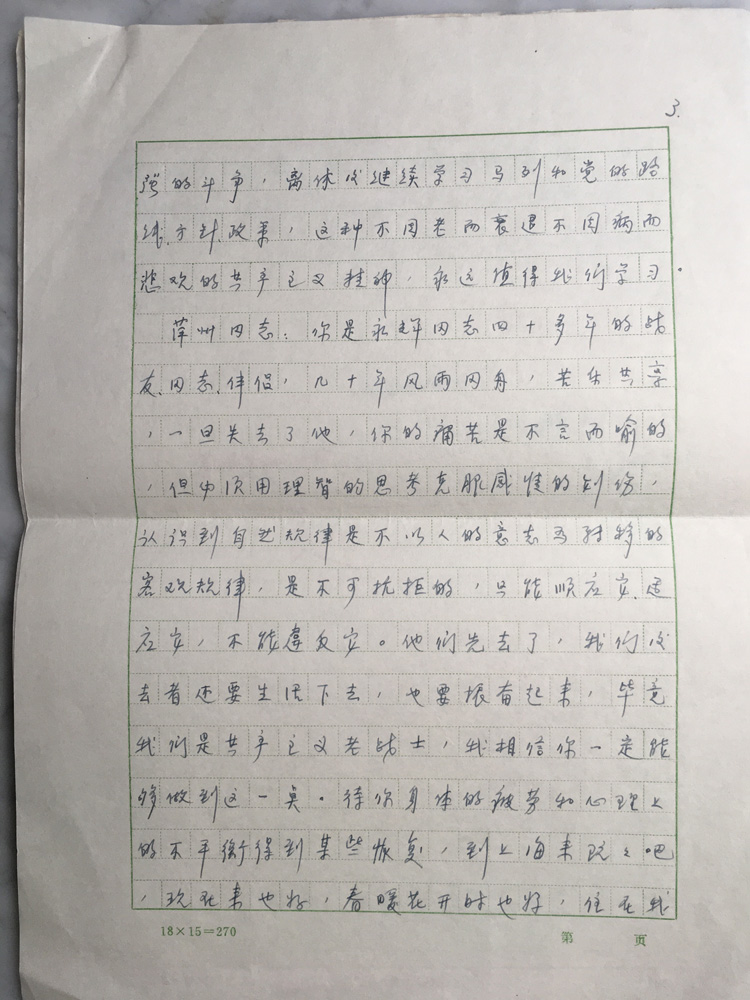 3.
强的斗争，离休后继续学习马列和党的路
线方针政策，这种不因老而衰退不因病而
悲观的共产主义精神，永远值得我们学习
萍州同志：你是永辉同志四十多年的战
友、同志、伴侣，几十年风雨同舟，苦乐共享
，一旦失去了他，你的痛苦是不言而喻的
，但必须用理智的思考克服感情的创伤，
认识到自然规律是不以人的意志为转移的
客观规律，是不可抗拒的，只能顺应它、适
应它，不能违反它。他们先去了，我们后
去者还要生活下去，也要振奋起来，毕竟
我们是共产主义老战士，我相信你一定能
够做到这一点。待你身体的疲劳和心理上
的不平衡得到某些恢复，到上海来玩玩吧
，现在来也好，春暖花开时也好，住在我
18×15=270
第 页